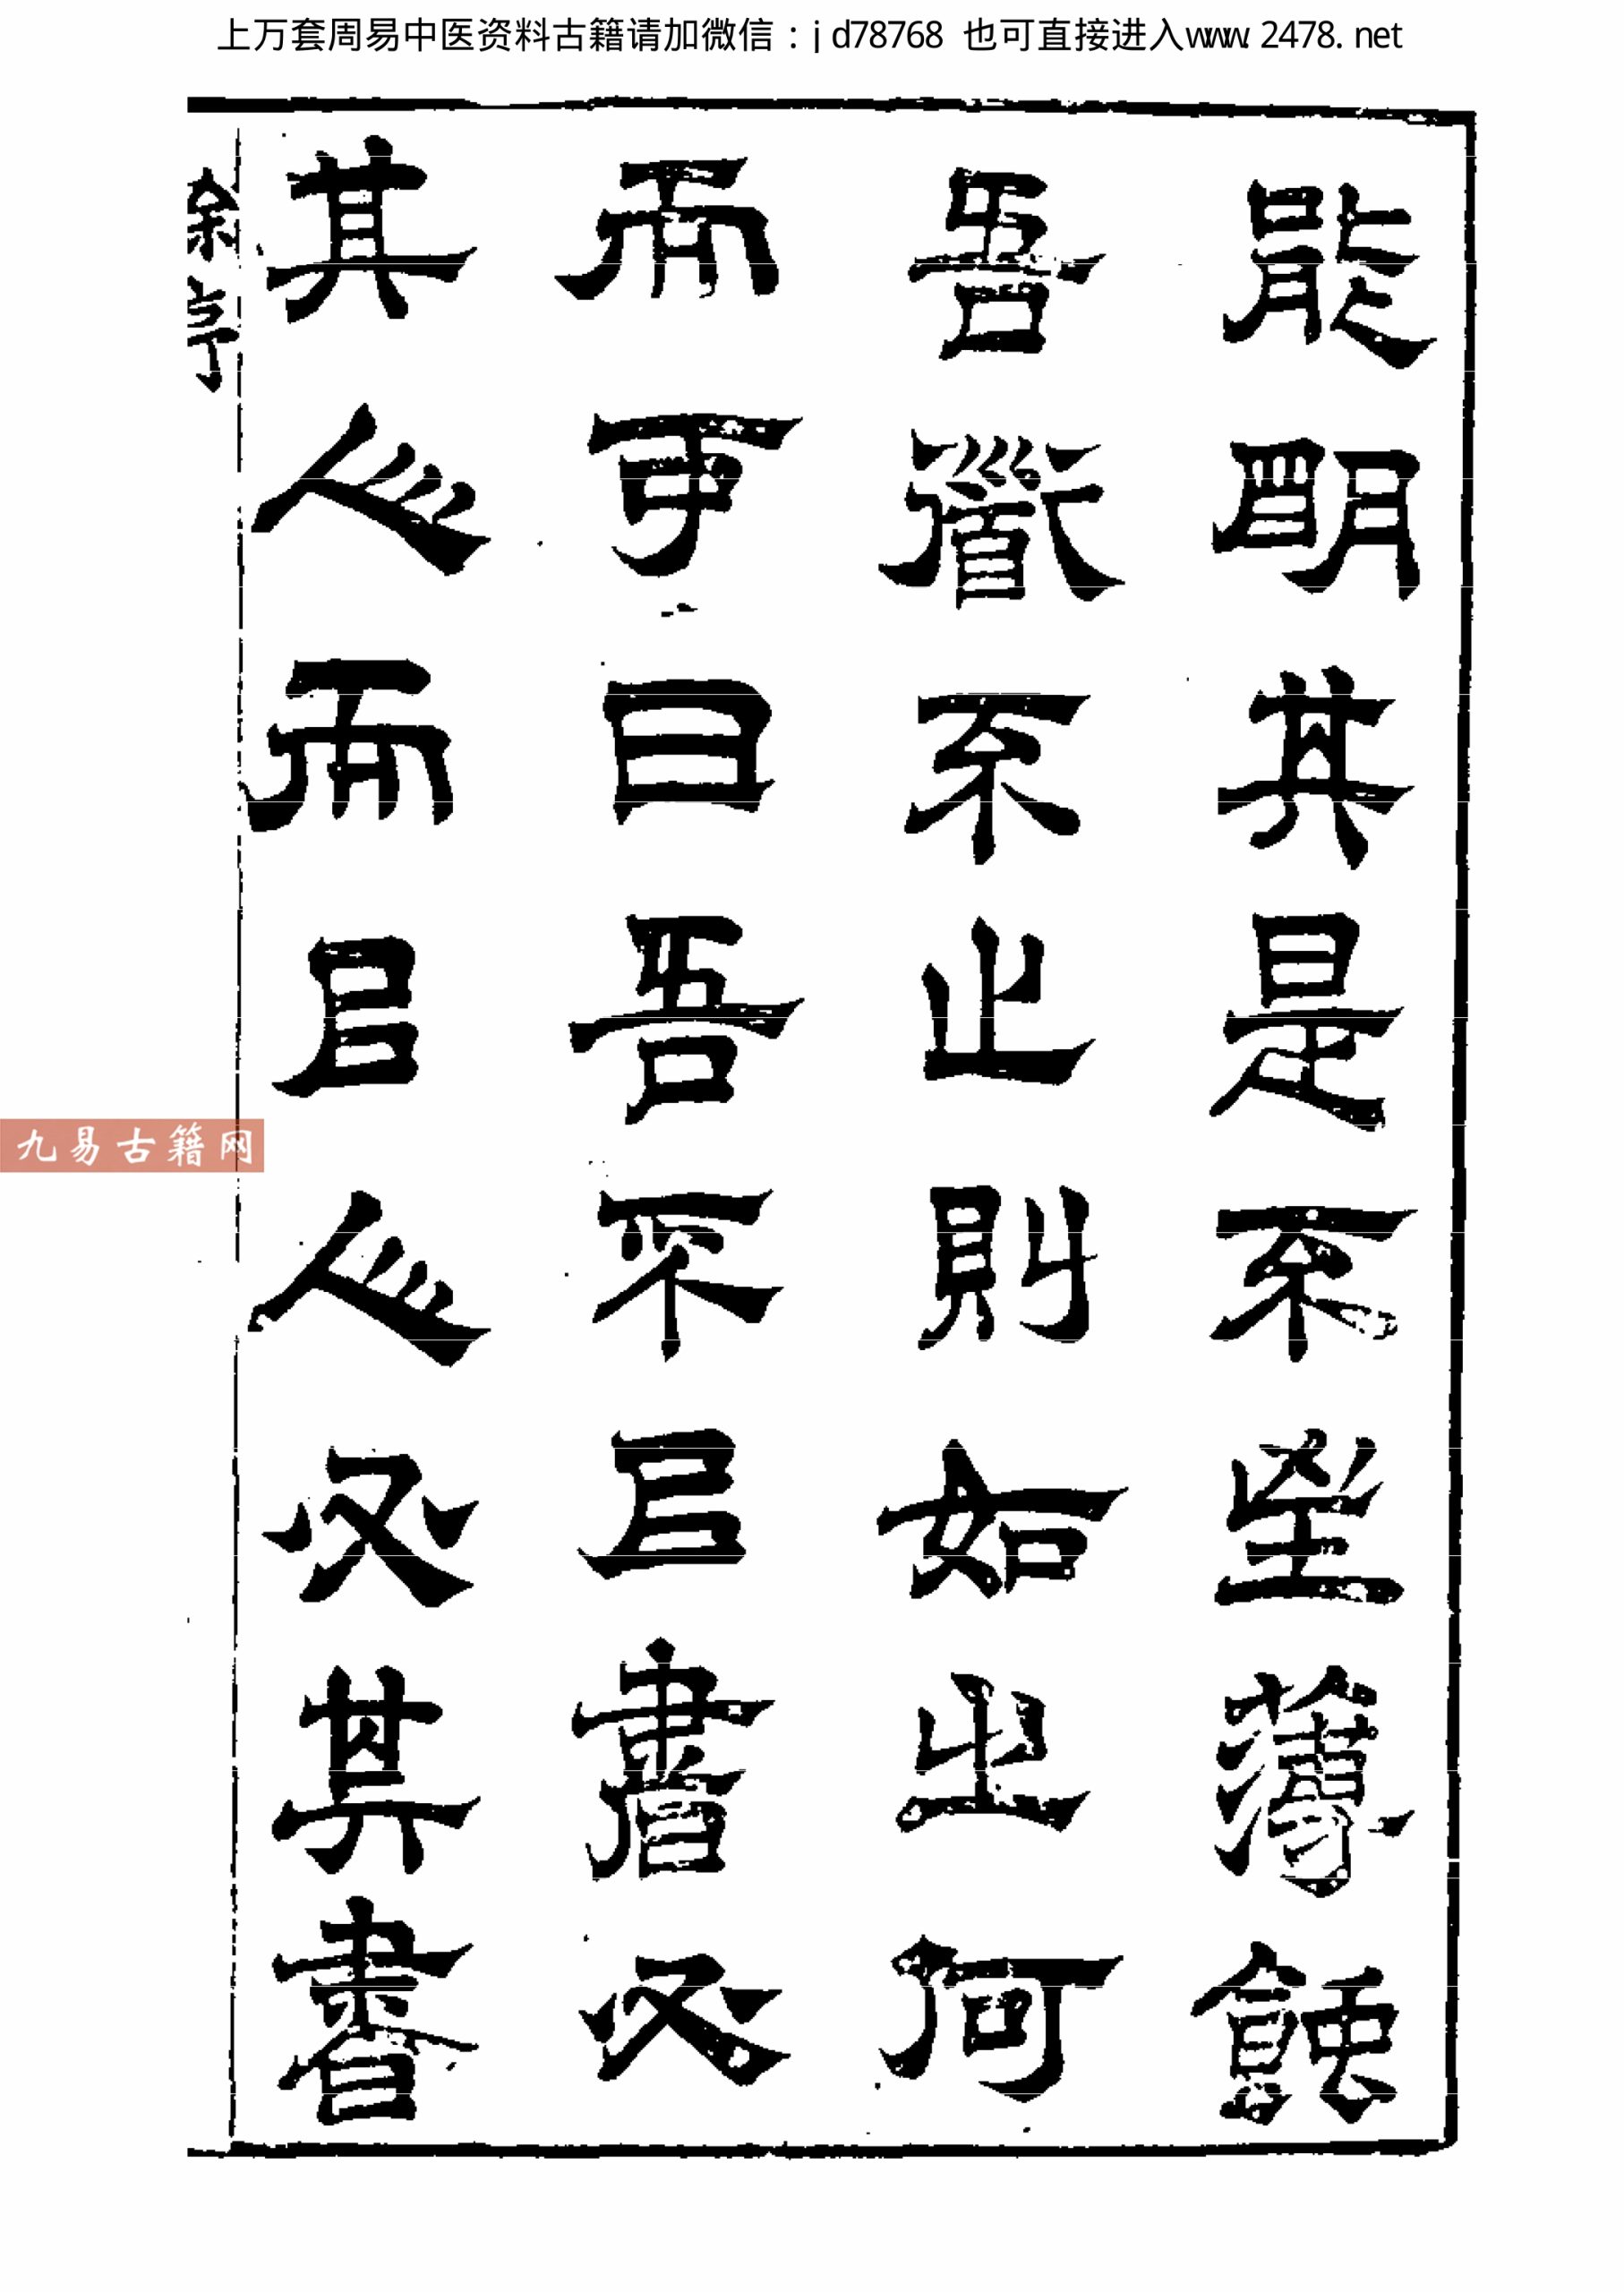 上万套周易中医资料古籍请加微信：jd78768 也可直接进入www.2478.net
能明其是不坐薄蝕
吾衜不止則如之何
而可曰吾不㠯書必
其心而㠯心必其書
九易古籍网